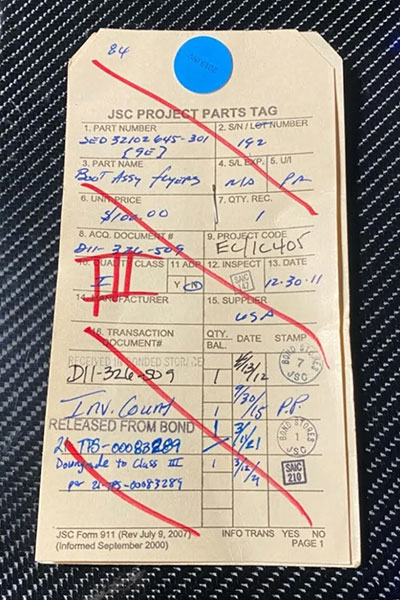 84
JSC PROJECT PARTS TAG
1. PART NUMBER 2. S/N / LOT NUMBER
SED 32102645-301 192
(9E)
3. PART NAME 4. S/L EXP. 5. U/I
Boot Assy flyers N/A PR
6. UNIT PRICE 7. QTY. REC.
$100.00 1
8. ACQ. DOCUMENT # 9. PROJECT CODE
D11-326-509 EC/1C405
10. QUALITY CLASS 11 ADP 12. INSPECT 13. DATE
I III Y N SAIC 12-30-11
14. MANUFACTURER 15. SUPPLIER
USA
16. TRANSACTION DOCUMENT# QTY. BAL. DATE STAMP
RECEIVED IN BONDED STORAGE
D11-326-509 1 /13/12 BOND STORES 7 JSC
Inv. Count 1 9/30/15 P.P.
RELEASED FROM BOND
21-TPS-00083289 1 3/11/21 BOND STORES 1 JSC
Downgrade to Class III 1 3/12/21 SAIC 210
per 21-TPS-00083289
JSC Form 911 (Rev July 9, 2007) INFO TRANS YES NO
(Informed September 2000) PAGE 1